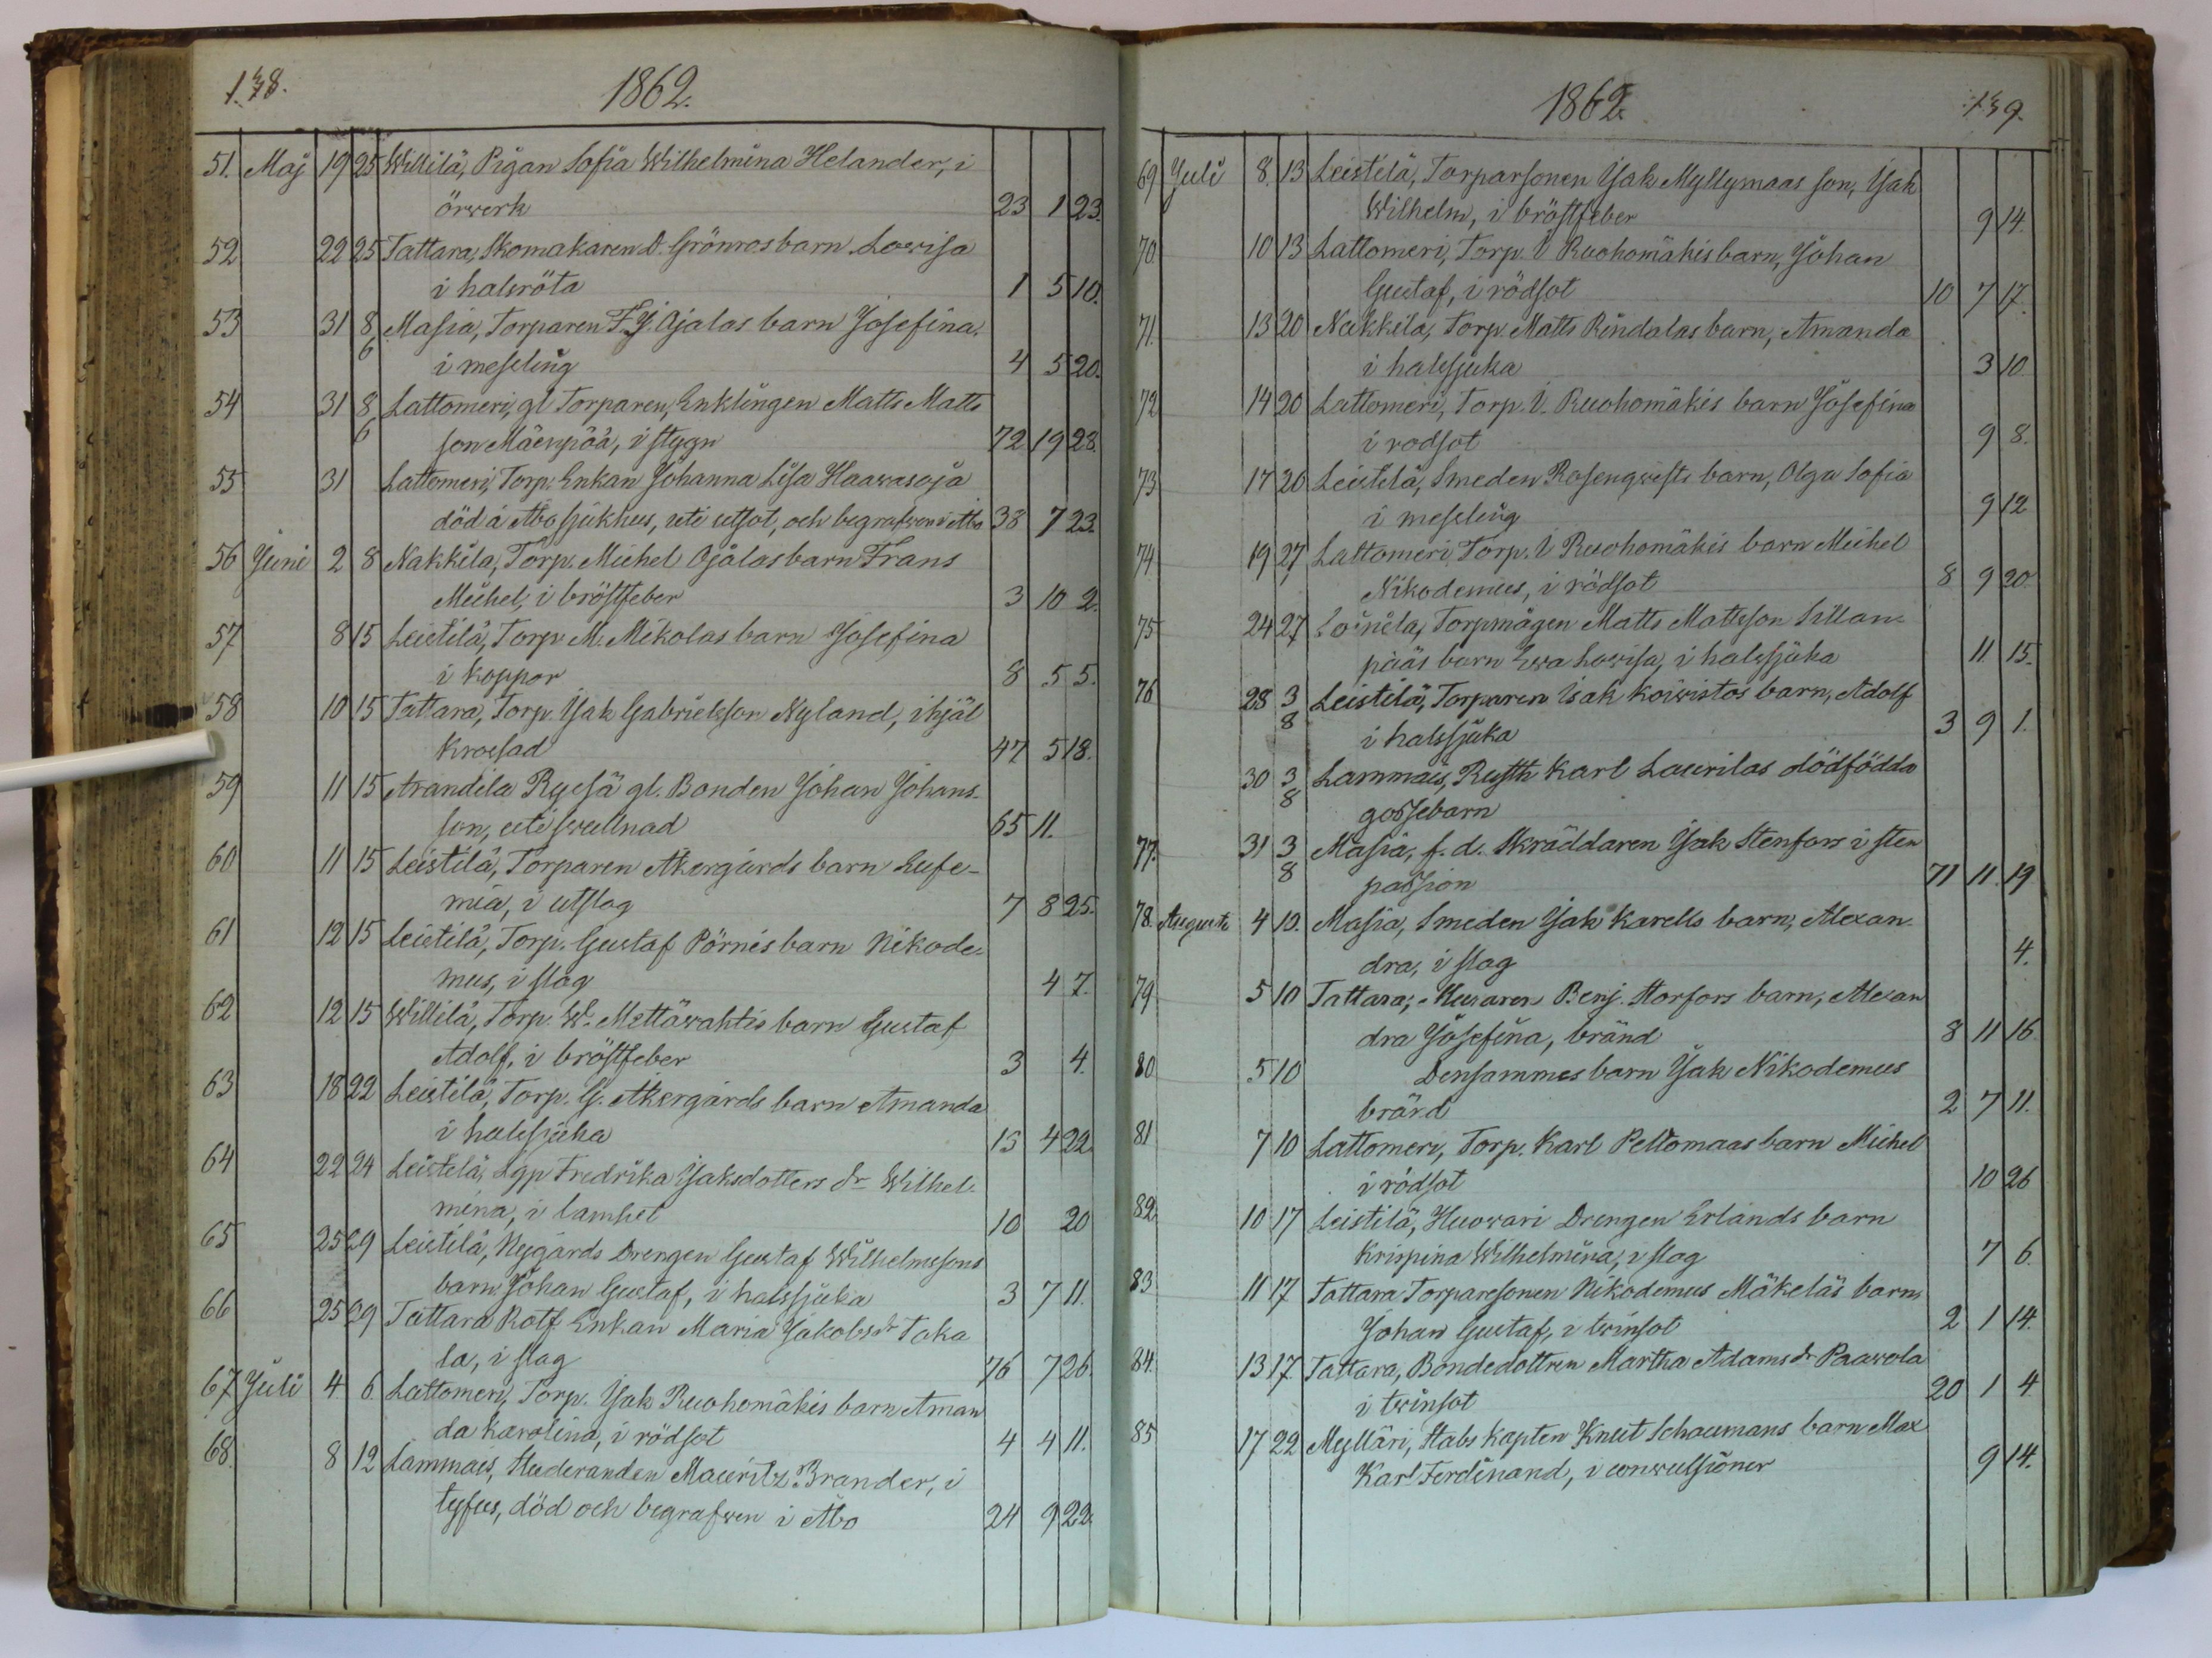 138.
1862.
51. Maj 19 25 Willilä, Pigan Sofia Wilhelmina Helander, i
örwerk 23 1 23.
52 22 25 Tattara, Skomakaren D. Grönros barn Lowisa
i halsröta 1 5 10.
53 31 8/6 Masia, Torparen F.J. Ojalas barn Josefina
i messling 4 5 20.
54 31 8/6 Lattomeri, gl Torparen, Enklingen Matts Matts
son Mäenpää, i stygn 72 19 28.
55 31 Lattomeri, Torp. Enkan Johanna Lisa Haawasoja
död å Åbo sjukhus, uti utsot, och begrafwen i Åbo 38 7 23.
56 Juni 2 8 Nakkila, Torp. Michel Ojalas barn Frans
Michel, i bröstfeber 3 10 2.
57 8 15 Leistilä, Torp M. Mikolas barn Josefina
i koppor 8 5 5.
58 10 15 Tattara, Torp. Isak Gabrielsson Nyland, ihjäl
krossad 47 5 18.
59 11 15 Arandila Ryssä gl. Bonden Johan Johans-
son, uti swullnad 65 11.
60 11 15 Leistilä, Torparen Åkergårds barn Eufe-
mia, i utslag 7 8 25.
61 12 15 Leistilä, Torp. Gustaf Pörnis barn Nikode-
mus, i slag 4 7.
62 12 15 Willilä, Torp. W. Mettäwahtis barn Gustaf
Adolf, i bröstfeber 3 4.
63 18 22 Leistilä, Torp. G. Åkergårds barn Amanda
i halssjuka 13 4 22.
64 22 24 Leistilä, Lgp Fredrika Isaksdotters dr Wilhel-
mina, i lamhet 10 20
65 25 29 Leistilä, Nygårds Drengen Gustaf Wilhelmssons
barn Johan Gustaf, i halssjuka 3 7 11.
66 25 29 Tattara Rotf. Enkan Maria Jakobsdr Taka
la, i slag 76 7 26.
67 Juli 4 6. Lattomeri, Torp. Isak Ruohomäkis barn Aman
da Karolina, i rödsot 4 4 11.
68. 8 12 Lammais, Studeranden Mauritz Brander, i
tyfus, död och begrafwen i Åbo 24 9 22.
1862.
139.
69 Juli 8. 13 Leistilä, Torparsonen Isak Myllymaas son, Isak
Wilhelm, i bröstfeber 9 14.
70 10 13 Lattomeri, Torp. I Ruohomäkis barn, Johan
Gustaf, i rödsot 10 7 17.
71. 13 20 Nakkila, Torp. Matts Rindalas barn, Amanda
i halssjuka 3 10
72 14 20 Lattomeri, Torp. I. Ruohomäkis barn Josefina
i rodsot 9 8.
73 17 20 Leistilä, Smeden Rosenqwists barn, Olga Sofia
i messling 9 12
74 19 27 Lattomeri Torp. I Ruohomäkis barn Michel
Nikodemus, i rödsot 8 9 20.
75 24 27 Soinila, Torpmågen Matts Mattsson Sillan-
pääs barn Ewa Lowisa, i halssjuka 11. 15.
76 28 3/8 Leistilä, Torparen Isak Koiwistos barn, Adolf
i halssjuka 3 9 1.
30 3/8 Lammais, Rusth Karl Laurilas dödfödda
gossebarn
77. 31 3/8 Masia, f. d. Skräddaren Isak Stenfors i sten
passion 71 11. 19
78. Augusti 4 10. Masia, Smeden Isak Karells barn, Alexan-
dra, i slag 4.
79 5 10 Tattara, Muraren Benj. Storfors barn, Alexan
dra Josefina, bränd 8 11 16
80 5 10 Densammes barn Isak Nikodemus
bränd 2 7 11.
81 7 10 Lattomeri, Torp. Karl Peltomaas barn Michel
i rödsot 10 26
82 10 17 Leistilä, Huowari Drengen Erlands barn
Krispina Wilhelmina, i slag 7 6.
83 11 17 Tattara Torparesonen Nikodemus Mäkeläs barn,
Johan Gustaf, i twinsot 2 1 14.
84. 13 17. Tattara, Bondedottren Martha Adamsdr Paawola
i twinsot 20 1 4.
85 17 22 Mylläri, Stabs Kapten Knut Schaumans barn Max
Karl Ferdinand, i conwulsioner 9 14.